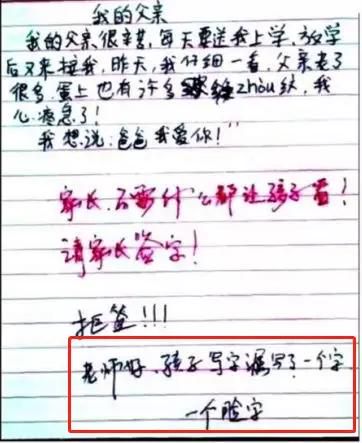 我的父亲
我的父亲很辛苦,每天要送我上学,放学
后又来接我,昨天,我仔细一看,父亲老了
很多,蛋上也有许多zhòu纹,我
心疼急了!
我想说:爸爸我爱你!”
家长,不要什么都让孩子看!
请家长签字!
拒签!!!
老师好,孩子写字漏写了一个字
一个脸字